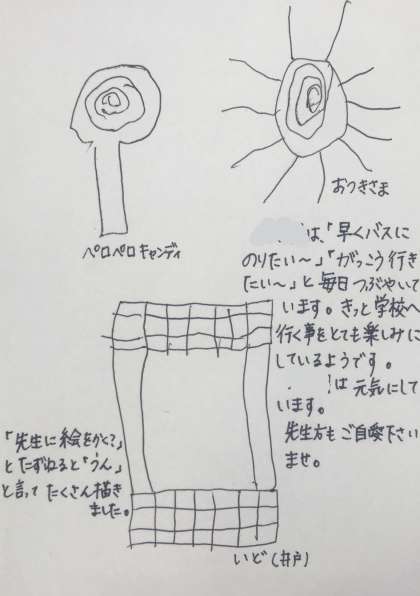 ペロペロキャンディ
おつきさま
は、「早くバスに
のりたい〜」「がっこう行き
たい〜」と毎日つぶやいて
います。きっと学校へ
行く事をとても楽しみに
しているようです。
は元気にして
います。
先生方もご自愛下さい
ませ。
「先生に絵をかく?」
とたずねると「うん」
と言ってたくさん描き
ました。
いど(井戸)